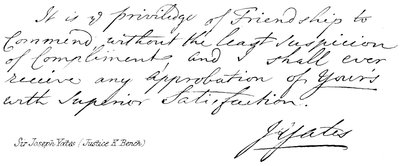 It is ye priviledge of Friendship to
Commend without the least Suspicion
of Compliment, and I shall ever
receive any approbation of Yours
with Superior Satisfaction.
J Yates
Sir Joseph Yates (Justice K. Bench)